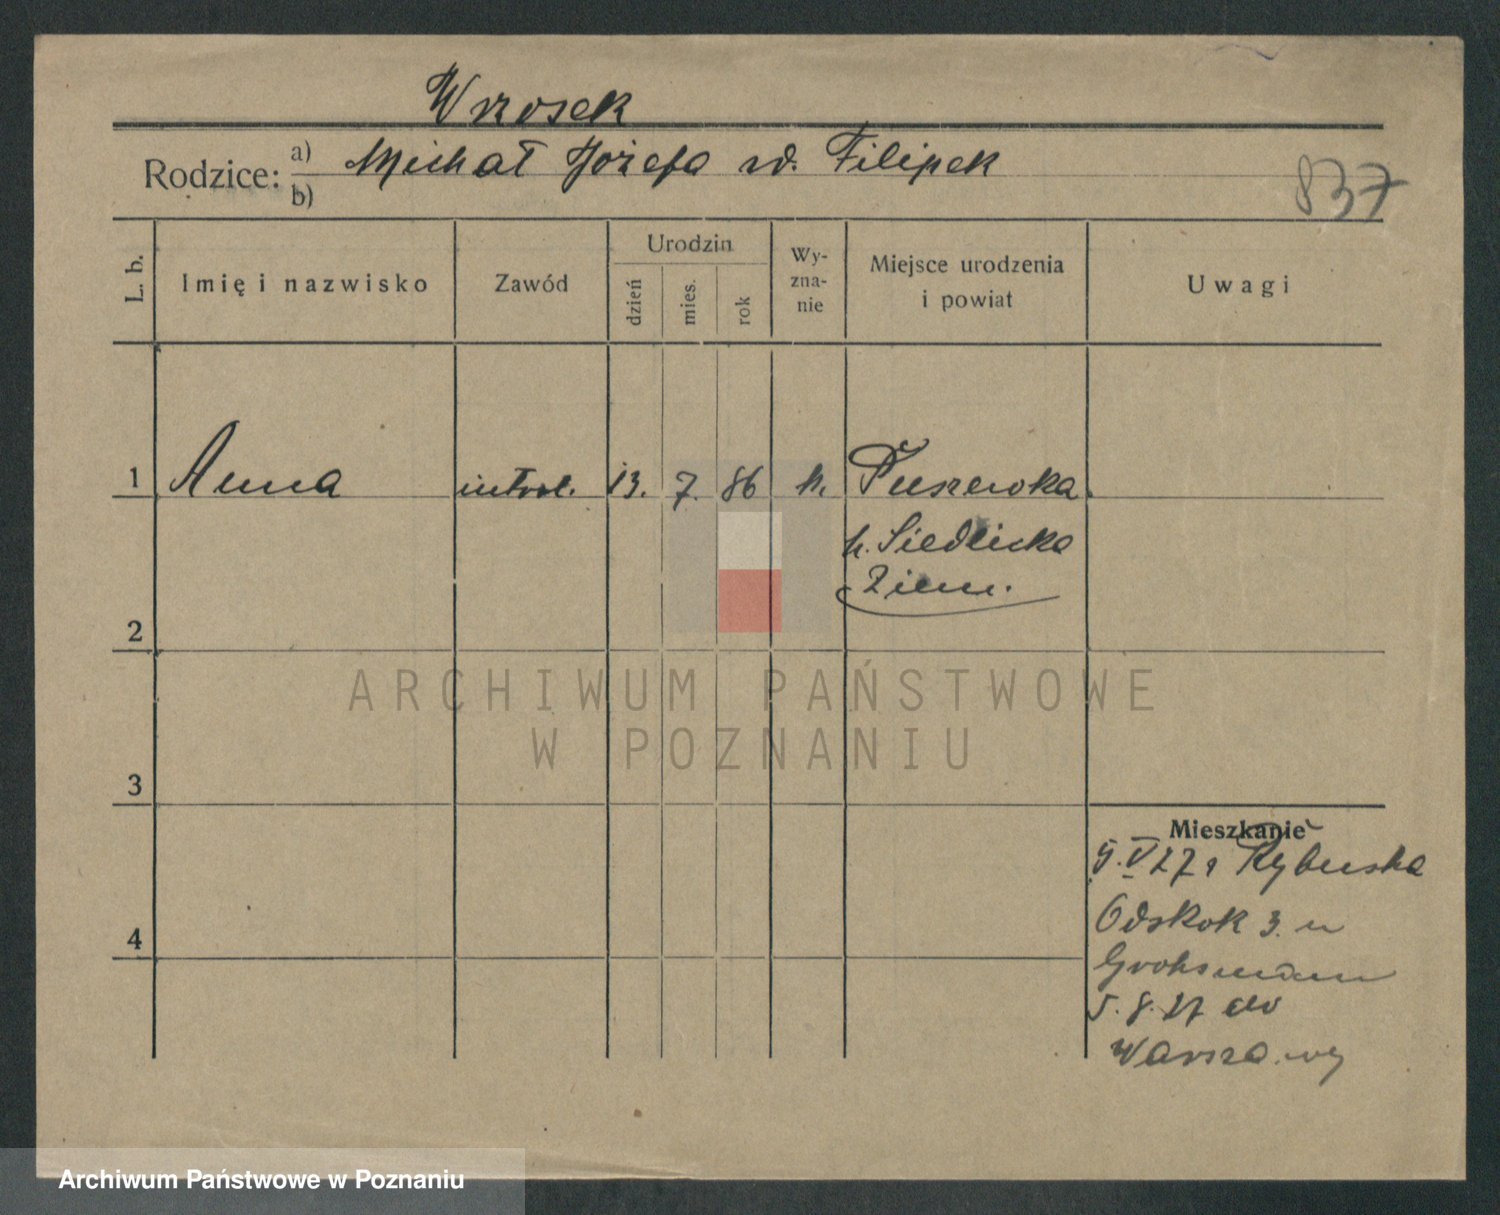 Wrzosek
Rodzice: a) Michał Józefa zd. Filipek
b)
837
L. b.
Imię i nazwisko
Zawód
Urodzin
dzień
mies.
rok
Wy-
zna-
nie
Miejsce urodzenia
i powiat
Uwagi
1 Anna introl. 13. 7. 86 k.
p. Siedlecka
Ziem.
2
ARCHIWUM PAŃSTWOWE
W POZNANIU
3
Mieszkanie
5.V 27 z
4
Odskok 3. u
5.8.27 do
Warszawy
Archiwum Państwowe w Poznaniu